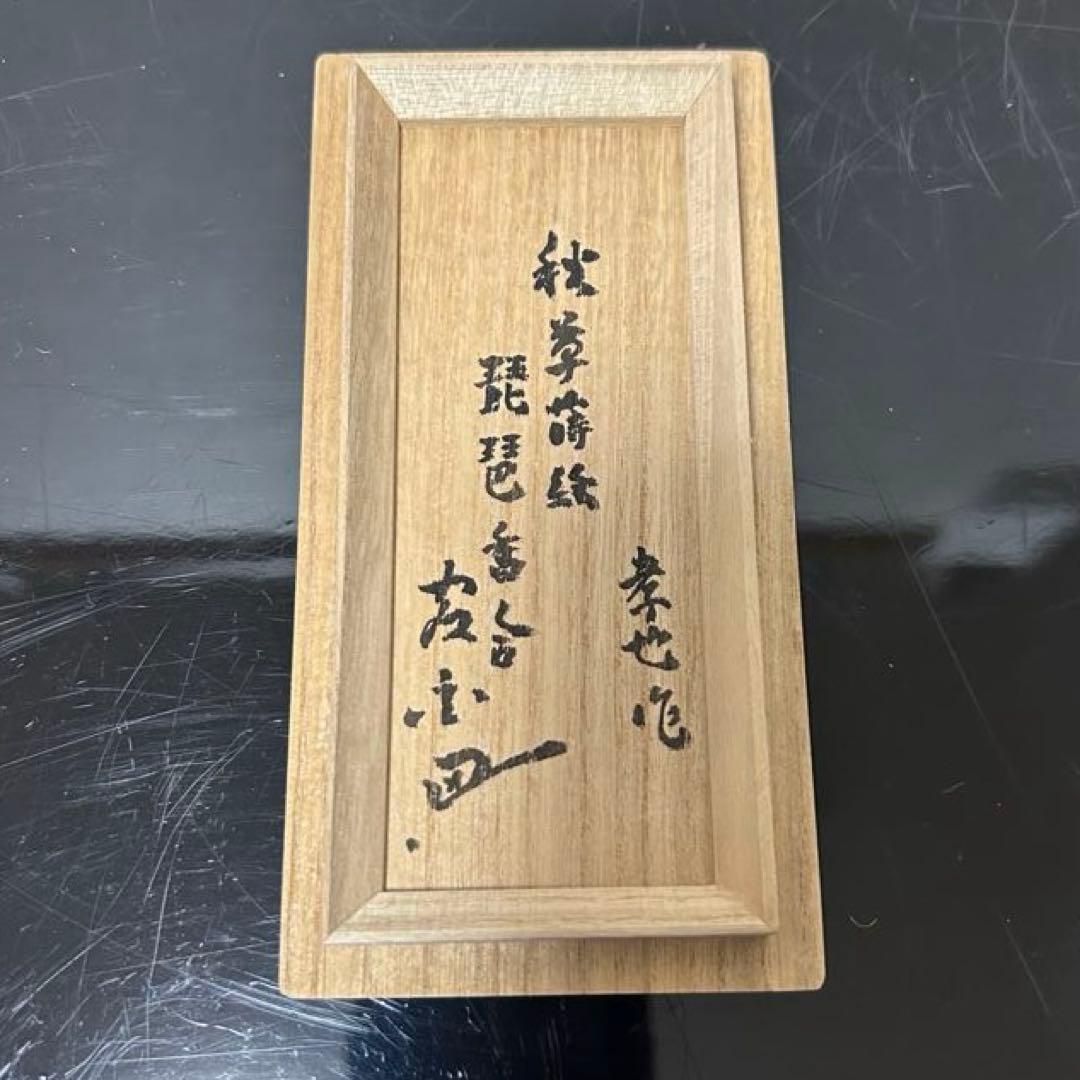 孝也作
秋草蒔絵
琵琶香合